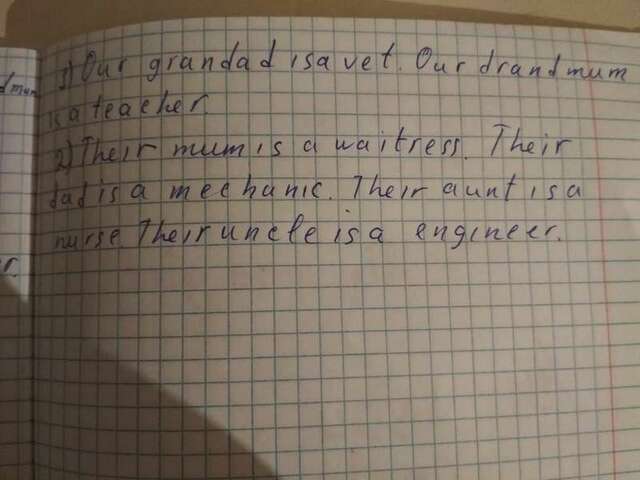 1) Our grandad is a vet. Our drandmum
is a teacher.
2) Their mum is a waitress. Their
dad is a mechanic. Their aunt is a
nurse Their uncle is a engineer.